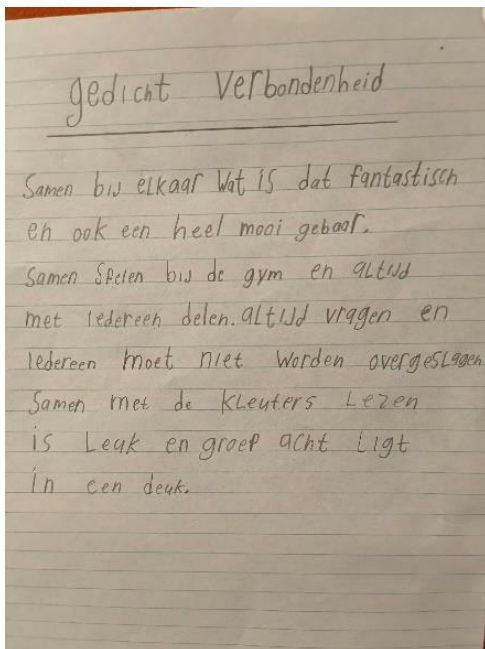 gedicht Verbondenheid
Samen bij elkaar Wat is dat fantastisch
en ook een heel mooi gebaar.
Samen Spelen bij de gym en altijd
met iedereen delen. altijd vragen en
iedereen moet niet worden overgeslagen
Samen met de kleuters Lezen
is Leuk en groep acht Ligt
in een deuk.